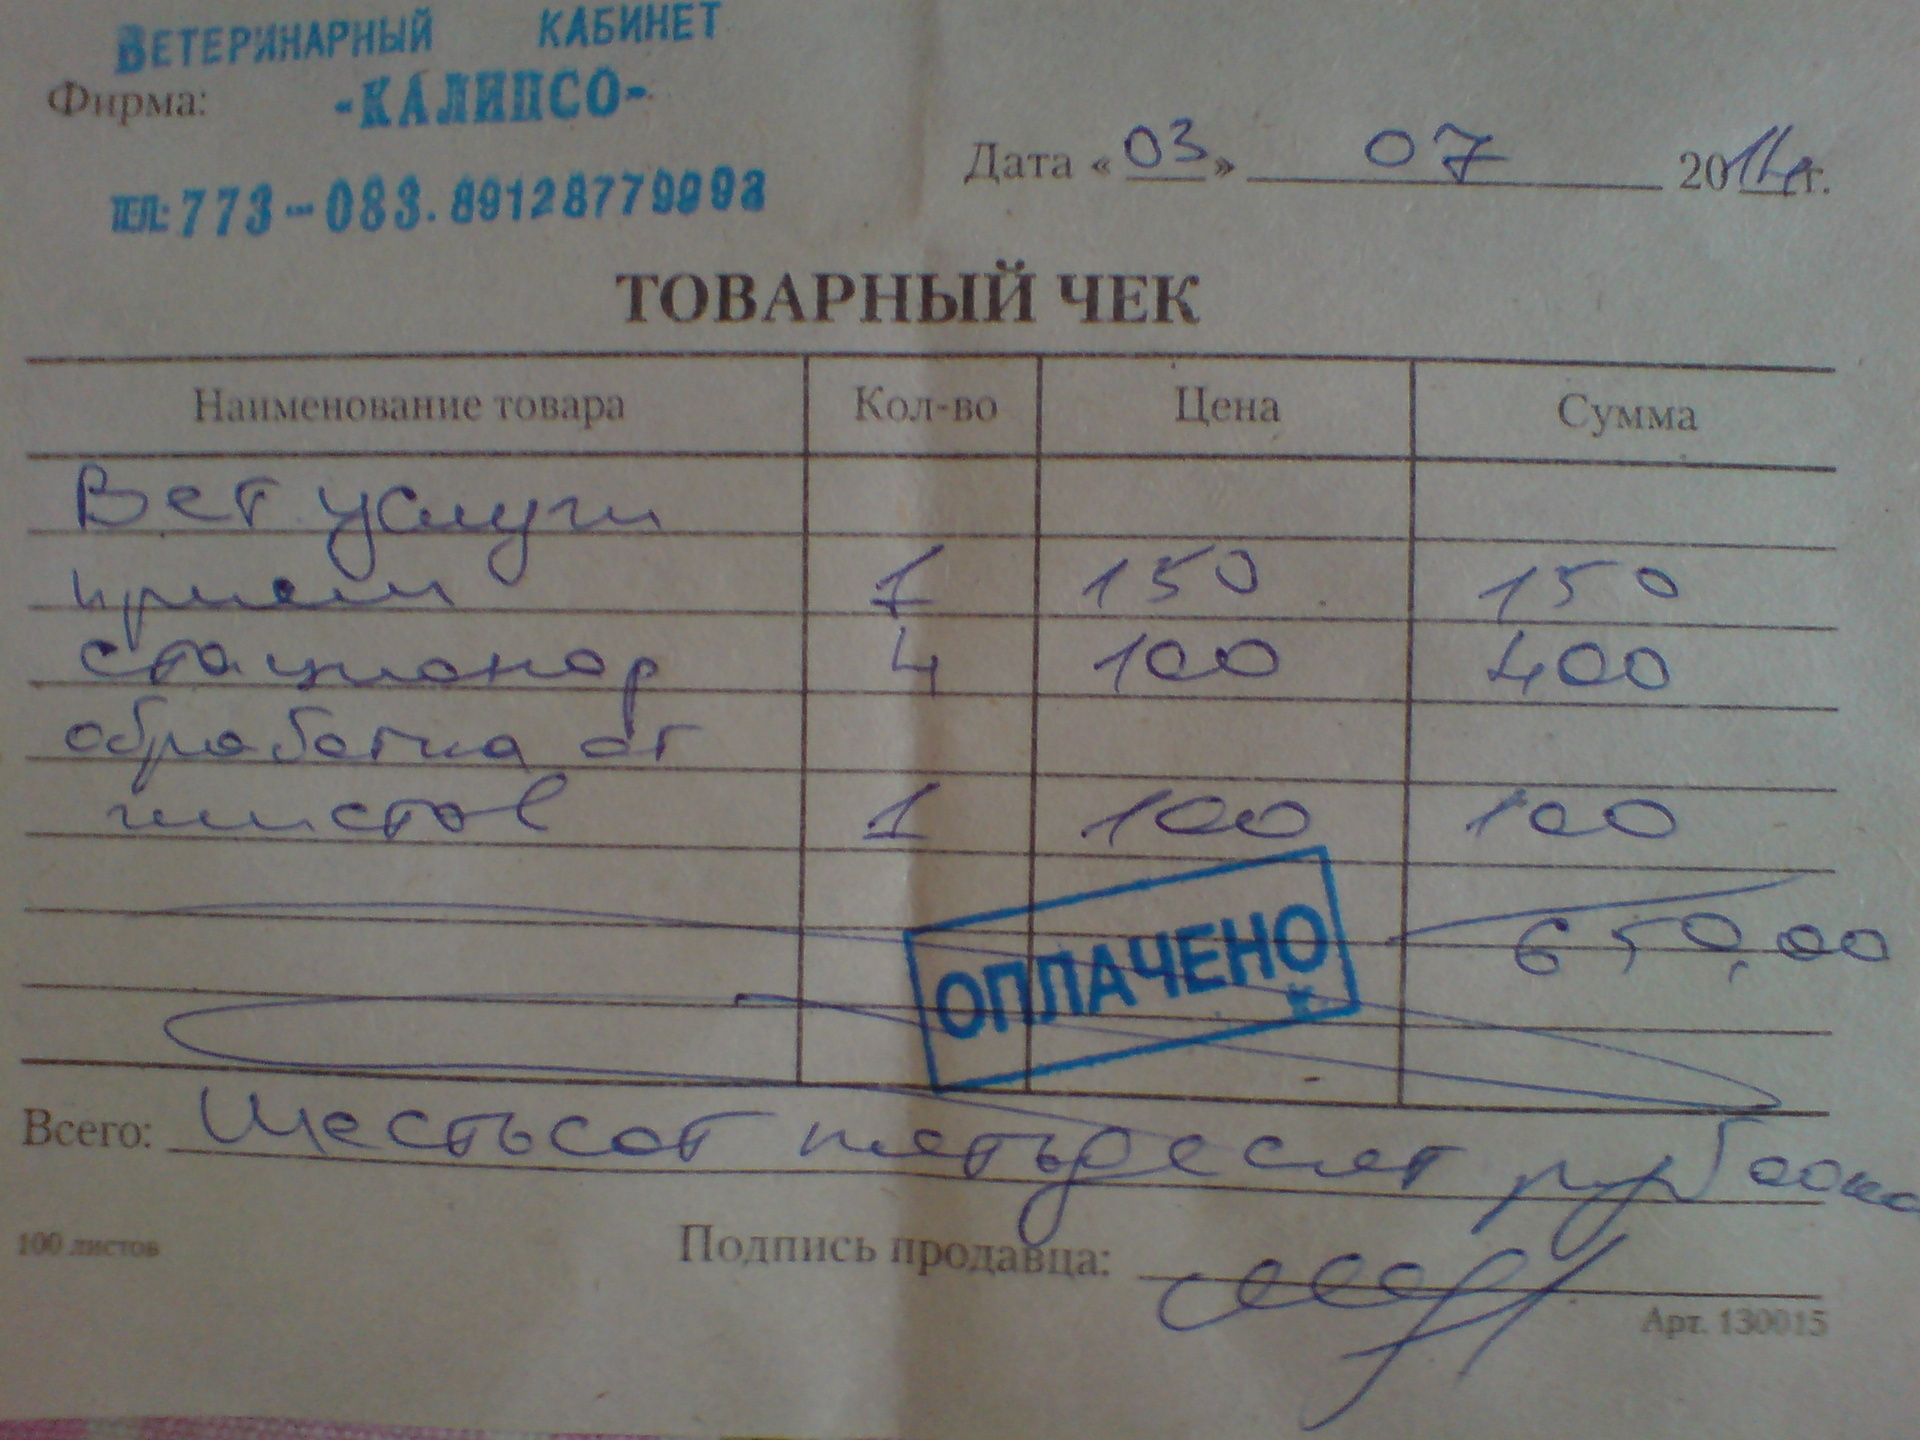 ВЕТЕРИНАРНЫЙ КАБИНЕТ
Фирма: -КАЛИПСО-
ТЕЛ: 773-083. 89128779993
Дата «03» 07 2014г.
ТОВАРНЫЙ ЧЕК
Наименование товара Кол-во Цена Сумма
Вет услуги
прием 1 150 150
стационар 4 100 400
обработка от
глистов 1 100 100
650,00
ОПЛАЧЕНО
Всего: Шестьсот пятьдесят руб 00 коп
100 листов
Подпись продавца:
Арт. 130015